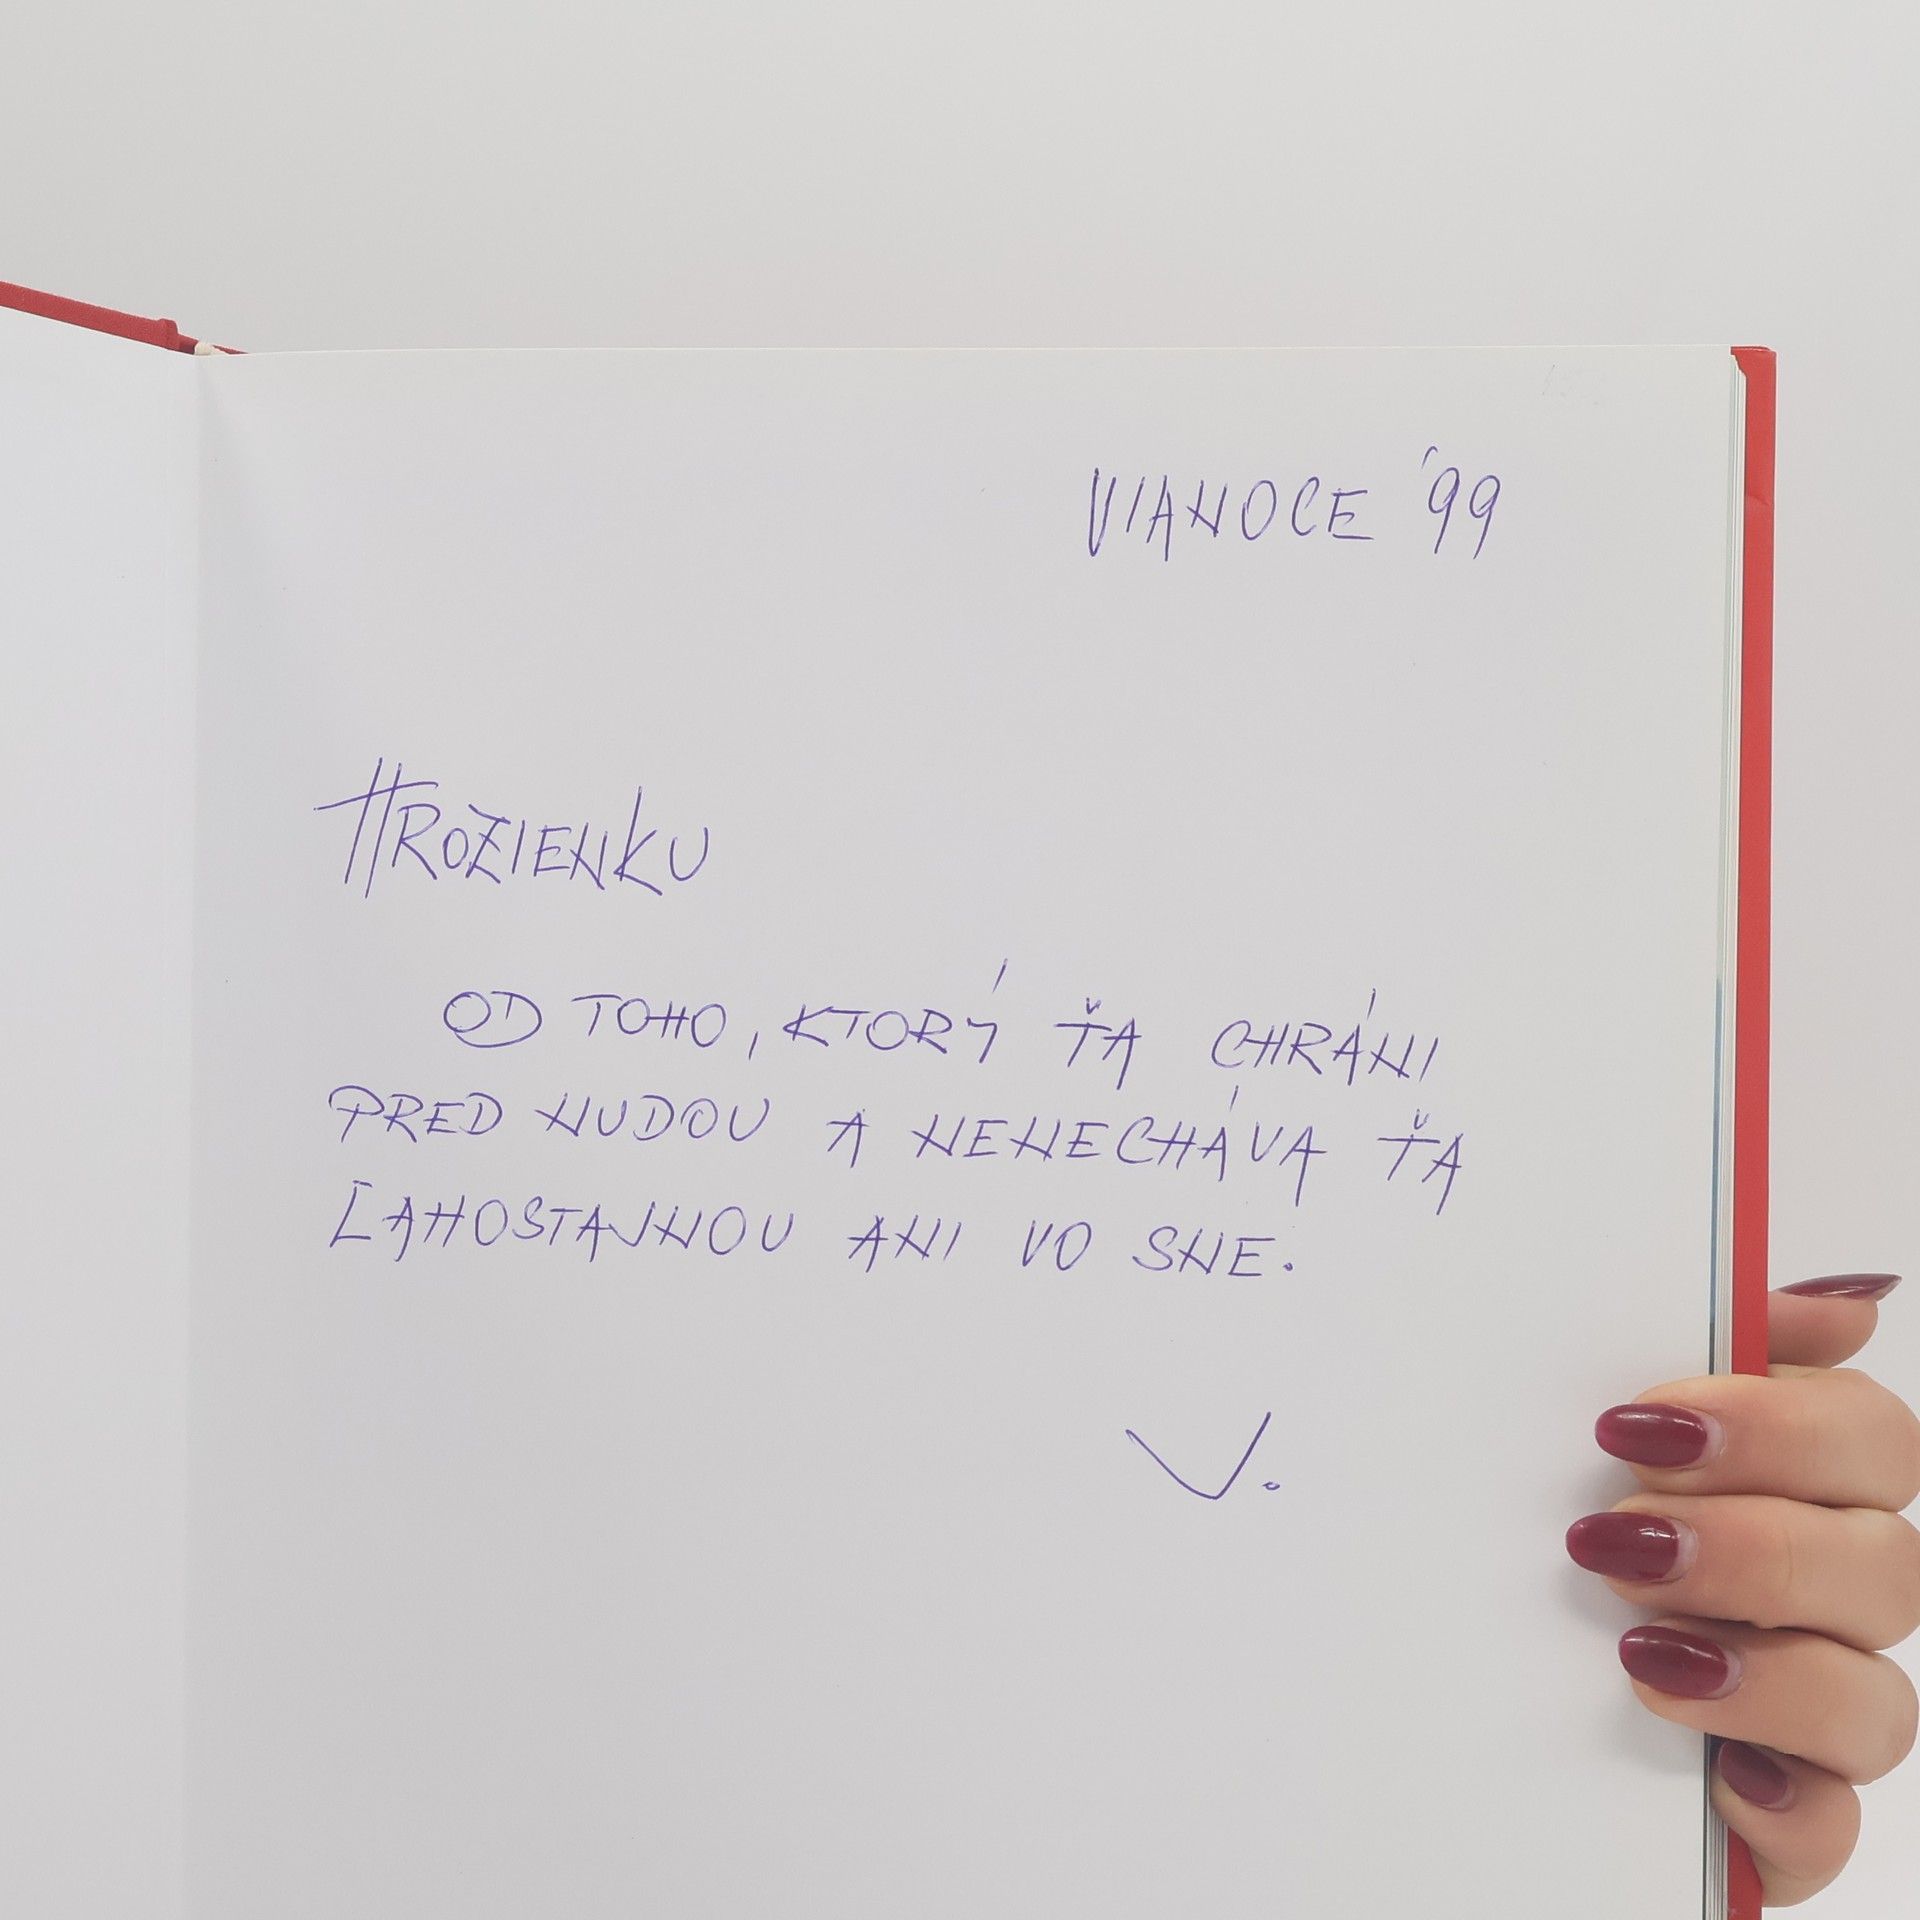 VIANOCE '99
HROZIENKU
OD TOHO, KTORÝ ŤA CHRÁNI
PRED NUDOU A NENECHÁVA ŤA
ĽAHOSTAJNOU ANI VO SNE.
V.